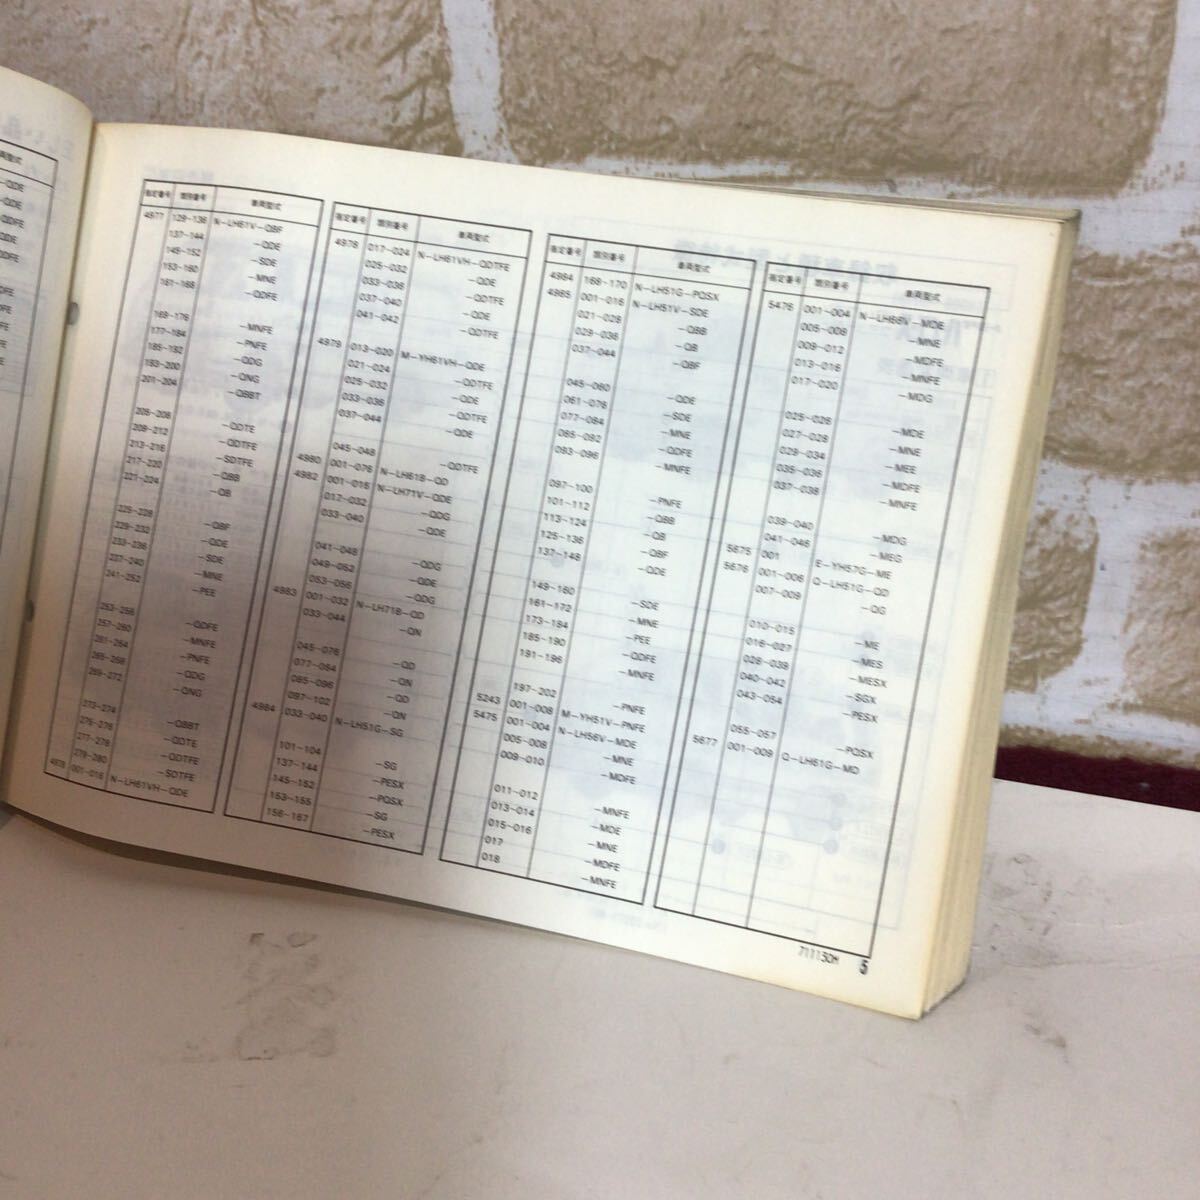 指定番号 類別番号 車両型式
4977 129-136 N-LH61V-QBF
137-144 -QDE
145-152 -SDE
153-160 -MNE
161-168 -QDFE
169-176 -MNFE
177-184 -PNFE
185-192 -QDG
193-200 -QNG
201-204 -QBBT
205-208 -QDTE
209-212 -QDTFE
213-216 -SDTFE
217-220 -QBB
221-224 -QB
225-228 -QBF
229-232 -QDE
233-236 -SDE
237-240 -MNE
241-252 -PEE
253-256 -QDFE
257-260 -MNFE
261-264 -PNFE
265-268 -QDG
269-272 -QNG
273-274 -QBBT
275-276 -QDTE
277-278 -QDTFE
279-280 -SDTFE
4978 001-016 N-LH61VH-QDE
指定番号 類別番号 車両型式
4978 017-024 N-LH61VH-QDTFE
025-032 -QDE
033-036 -QDTFE
037-040 -QDE
041-042 -QDTFE
4979 013-020 M-YH61VH-QDE
021-024 -QDTFE
025-032 -QDE
033-036 -QDTFE
037-044 -QDE
045-048 -QDTFE
4980 001-076 N-LH61B-QD
4982 001-016 N-LH71V-QDE
017-032 -QDG
033-040 -QDE
041-048 -QDG
049-052 -QDE
053-056 -QDG
4983 001-032 N-LH71B-QD
033-044 -QN
045-076 -QD
077-084 -QN
085-096 -QD
097-102 -QN
4984 033-040 N-LH51G-SG
101-104 -SG
137-144 -PESX
145-152 -PQSX
153-155 -SG
156-167 -PESX
指定番号 類別番号 車両型式
4984 168-170 N-LH51G-PQSX
4985 001-016 N-LH51V-SDE
021-028 -QBB
029-036 -QB
037-044 -QBF
045-060 -QDE
061-076 -SDE
077-084 -MNE
085-092 -QDFE
093-096 -MNFE
097-100 -PNFE
101-112 -QBB
113-124 -QB
125-136 -QBF
137-148 -QDE
149-160 -SDE
161-172 -MNE
173-184 -PEE
185-190 -QDFE
191-196 -MNFE
197-202 -PNFE
5243 001-008 M-YH51V-PNFE
5475 001-004 N-LH56V-MDE
005-008 -MNE
009-010 -MDFE
011-012 -MNFE
013-014 -MDE
015-016 -MNE
017 -MDFE
018 -MNFE
指定番号 類別番号 車両型式
5476 001-004 N-LH66V-MDE
005-008 -MNE
009-012 -MDFE
013-016 -MNFE
017-020 -MDG
025-026 -MDE
027-028 -MNE
029-034 -MEE
035-036 -MDFE
037-038 -MNFE
039-040 -MDG
041-046 -MEG
5675 001 E-YH57G-ME
5676 001-006 Q-LH51G-QD
007-009 -QG
010-015 -ME
016-027 -MES
028-039 -MESX
040-042 -SGX
043-054 -PESX
055-057 -PQSX
5677 001-009 Q-LH61G-MD
71113CH 5